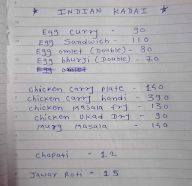 * INDIAN KADAI *
Egg curry - 90
Egg Sandwich - 110
Egg omlet (Double) - 80
Egg bhurji (Double) - 70
chicken curry plate - 140
chicken curry handi - 390
chicken masala fry - 130
chicken ukad Dry - 90
Murg masala - 140
chapati - 12
Jawar Roti - 15